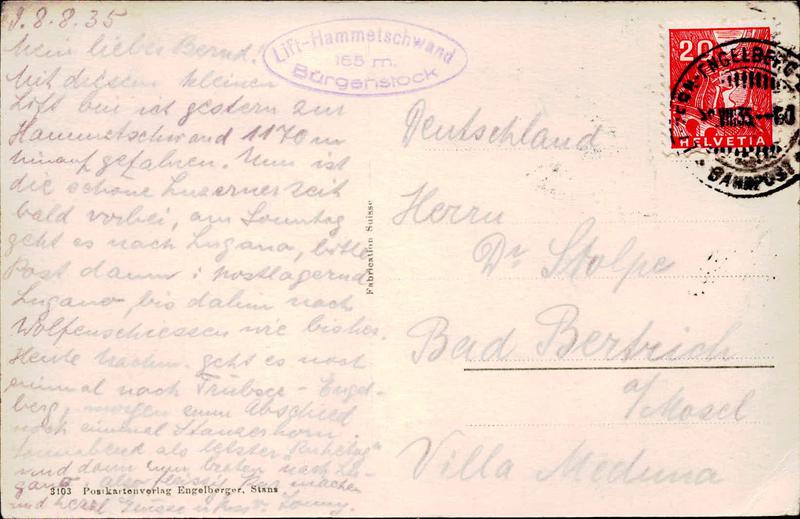 8.8.35
Mein lieber Bernd!
Mit diesem kleinen
Lift bin ich gestern zur
Hammetschwand 1170m
hinauf gefahren. Nun ist
die schöne Luzerner Zeit
bald vorbei, am Sonntag
geht es nach Lugano, bitte
Post dann: postlagernd
Lugano, bis dahin nach
Wolfenschiessen wie bisher.
Heute Nachm. geht es noch
einmal nach Trübsee - Engel-
berg, morgen zum Abschied
noch einmal Stanserhorn,
Sonnabend als letzter "Ruhetag"
und dann nach Lu-
gano, also
und herzl. Grüsse u. Kuss
Lift-Hammetschwand
165 m.
Bürgenstock
20
HELVETIA
ENGELBERG
VIII.35
BAHNPOST
Deutschland
Herrn
Dr Stolpe
Bad Bertrich
a/Mosel
Villa Meduna
Fabrication Suisse
3103 Postkartenverlag Engelberger, Stans